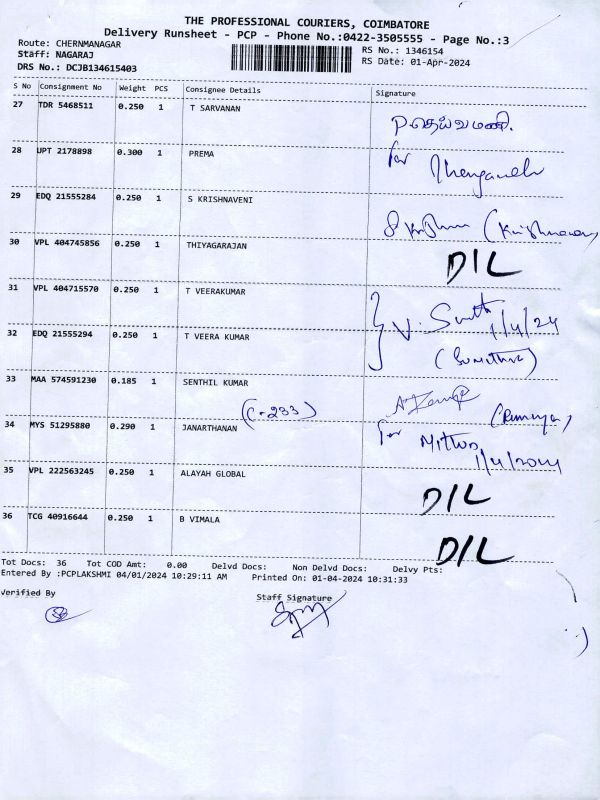 THE PROFESSIONAL COURIERS, COIMBATORE
Delivery Runsheet - PCP - Phone No.:0422-3505555 - Page No.:3
Route: CHERNMANAGAR
RS No.: 1346154
Staff: NAGARAJ
RS Date: 01-Apr-2024
DRS No.: DCJB134615403
S No Consignment No Weight PCS Consignee Details Signature
27 TDR 5468511 0.250 1 T SARVANAN
P தெய்வமணி.
28 UPT 2178898 0.300 1 PREMA
for
29 EDQ 21555284 0.250 1 S KRISHNAVENI
30 VPL 404745856 0.250 1 THIYAGARAJAN
D/L
31 VPL 404715570 0.250 1 T VEERAKUMAR
1/4/24
32 EDQ 21555294 0.250 1 T VEERA KUMAR
33 MAA 574591230 0.185 1 SENTHIL KUMAR
(C-233)
34 MYS 51295880 0.290 1 JANARTHANAN
for
1/4/2024
35 VPL 222563245 0.250 1 ALAYAH GLOBAL
D/L
36 TCG 40916644 0.250 1 B VIMALA
D/L
Tot Docs: 36 Tot COD Amt: 0.00 Delvd Docs: Non Delvd Docs: Delvy Pts:
Entered By :PCPLAKSHMI 04/01/2024 10:29:11 AM Printed On: 01-04-2024 10:31:33
Verified By
Staff Signature